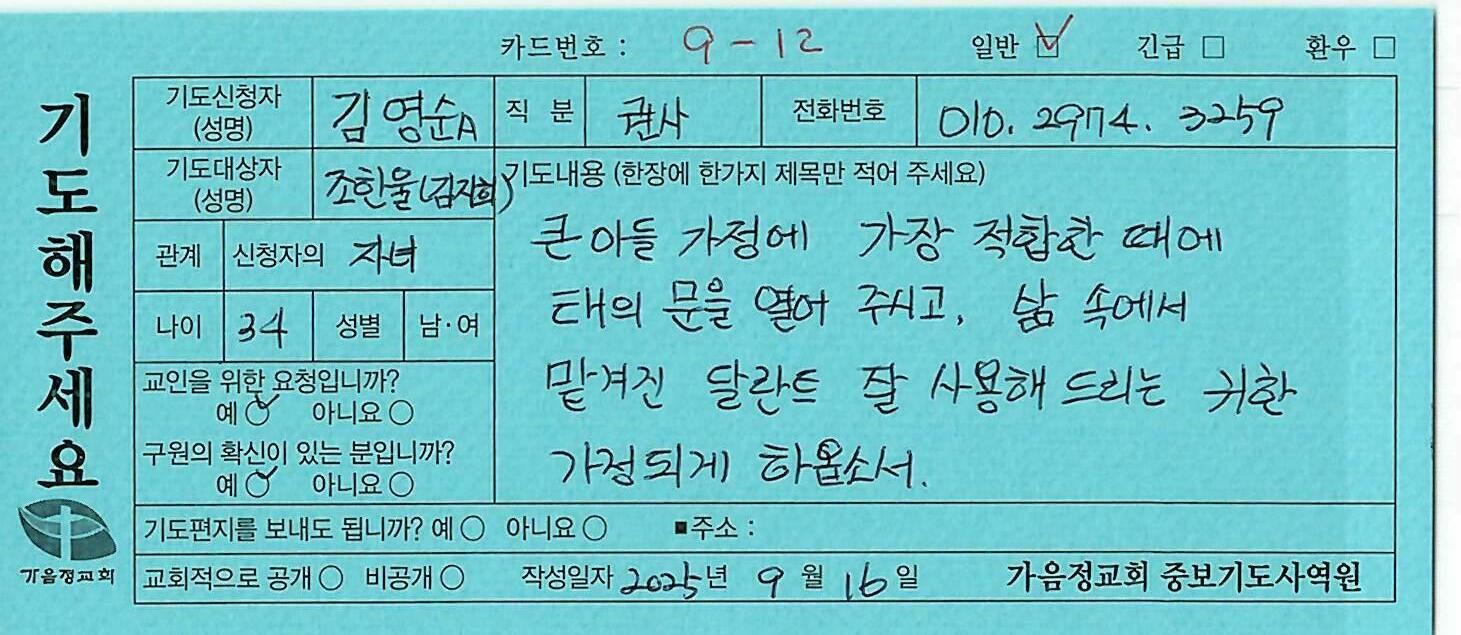 카드번호 : 9-12 일반 ☑ 긴급 □ 환우 □
기도해주세요
가음정교회
기도신청자 (성명) 김영순A 직 분 권사 전화번호 010. 2974. 3259
기도대상자 (성명) 조한울(김지희)
관계 신청자의 자녀
나이 34 성별 남·여
교인을 위한 요청입니까?
예 ○ 아니요 ○
구원의 확신이 있는 분입니까?
예 ○ 아니요 ○
기도내용 (한장에 한가지 제목만 적어 주세요)
큰아들 가정에 가장 적합한 때에
태의 문을 열어 주시고, 삶 속에서
맡겨진 달란트 잘 사용해 드리는 귀한
가정되게 하옵소서.
기도편지를 보내도 됩니까? 예 ○ 아니요 ○ ■주소 :
교회적으로 공개 ○ 비공개 ○ 작성일자 2025년 9월 16일 가음정교회 중보기도사역원